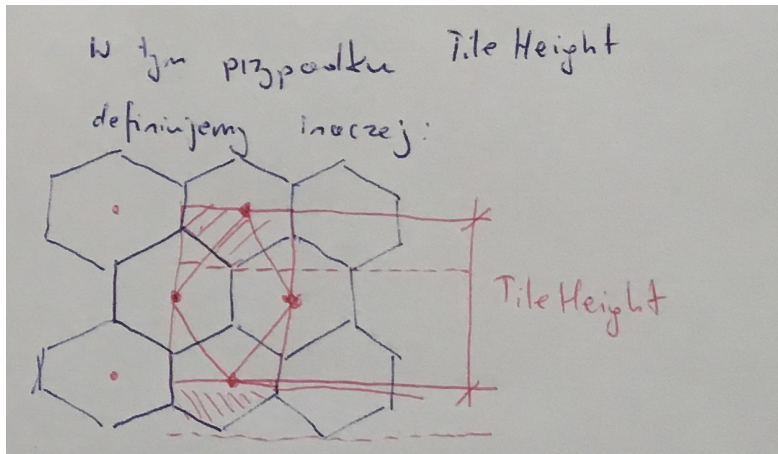 W tym przypadku Tile Height
definiujemy inaczej:
Tile Height